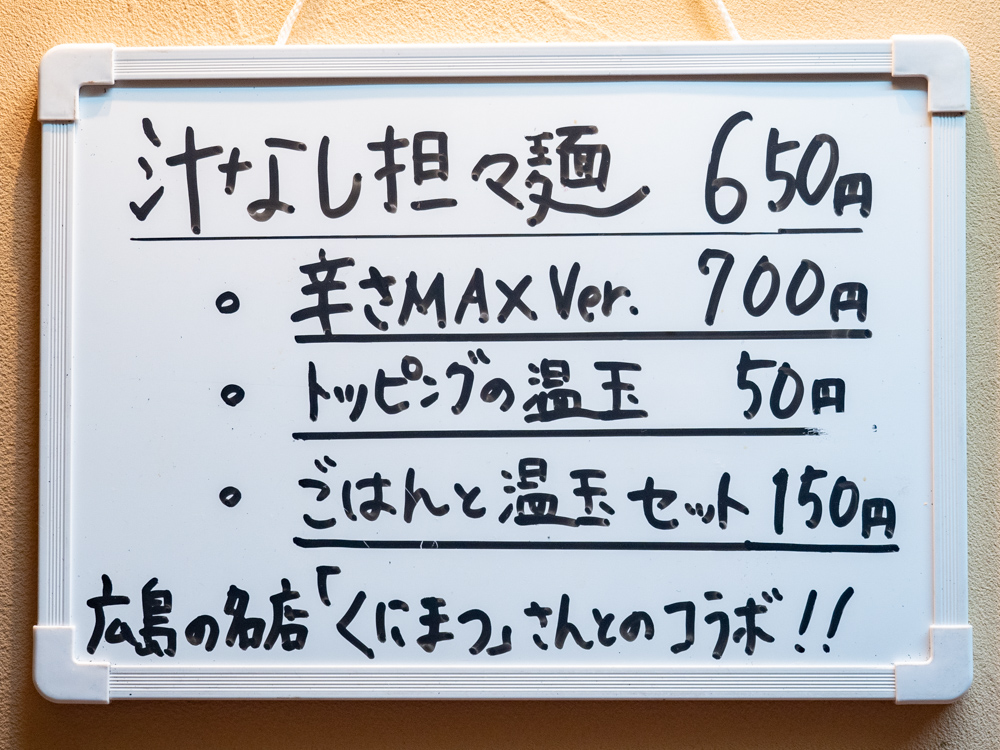 汁なし担々麺 650円
・ 辛さMAX Ver. 700円
・ トッピングの温玉 50円
・ ごはんと温玉セット 150円
広島の名店「くにまつ」さんとのコラボ!!